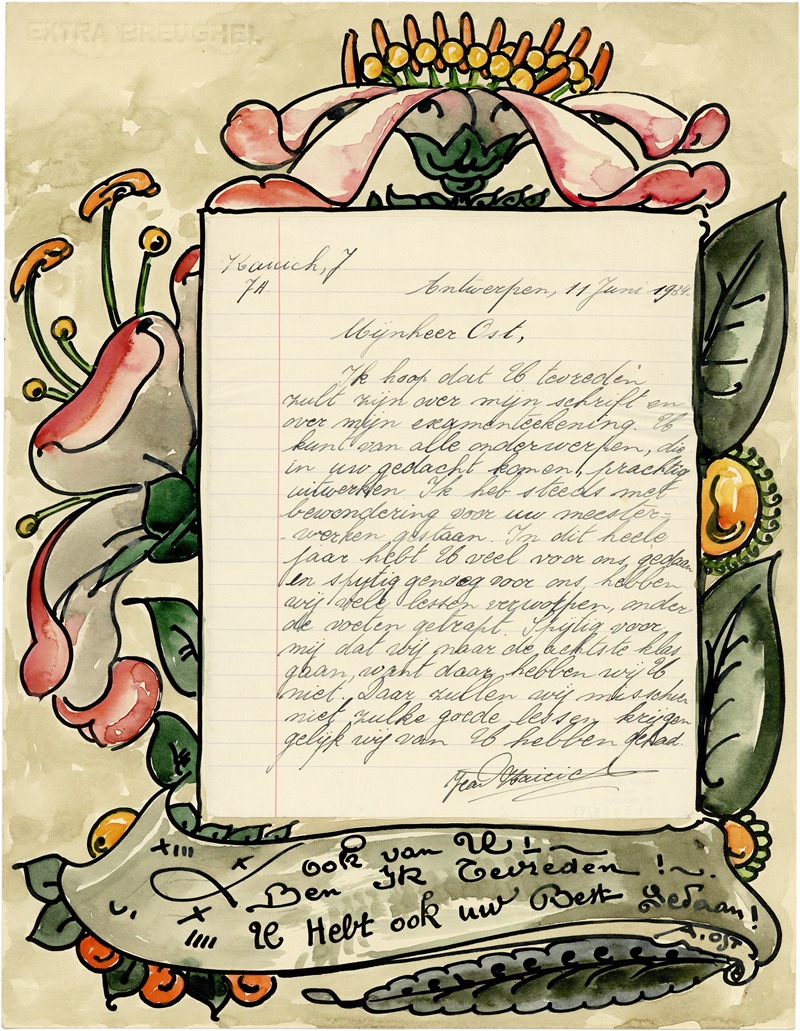 EXTRA BREUGHEL
J
7A. Antwerpen, 11 Juni 1934.
Mijnheer Ost,
Ik hoop dat U tevreden
zult zijn over mijn schrift en
over mijn examenteekening. U
kunt van alle onderwerpen, die
in uw gedacht komen, prachtig
uitwerken. Ik heb steeds met
bewondering voor uw meester=
werken gestaan. In dit heele
jaar hebt U veel voor ons gedaan
en spijtig genoeg voor ons, hebben
wij vele lessen verworpen, onder
de voeten getrapt. Spijtig voor
mij dat wij naar de achtste klas
gaan, want daar hebben wij U
niet. Daar zullen wij misschien
niet zulke goede lessen krijgen
gelijk wij van U hebben gehad.
Jean
Ook van U!
Ben Ik Tevreden!
U Hebt ook uw Best Gedaan!
A. Ost